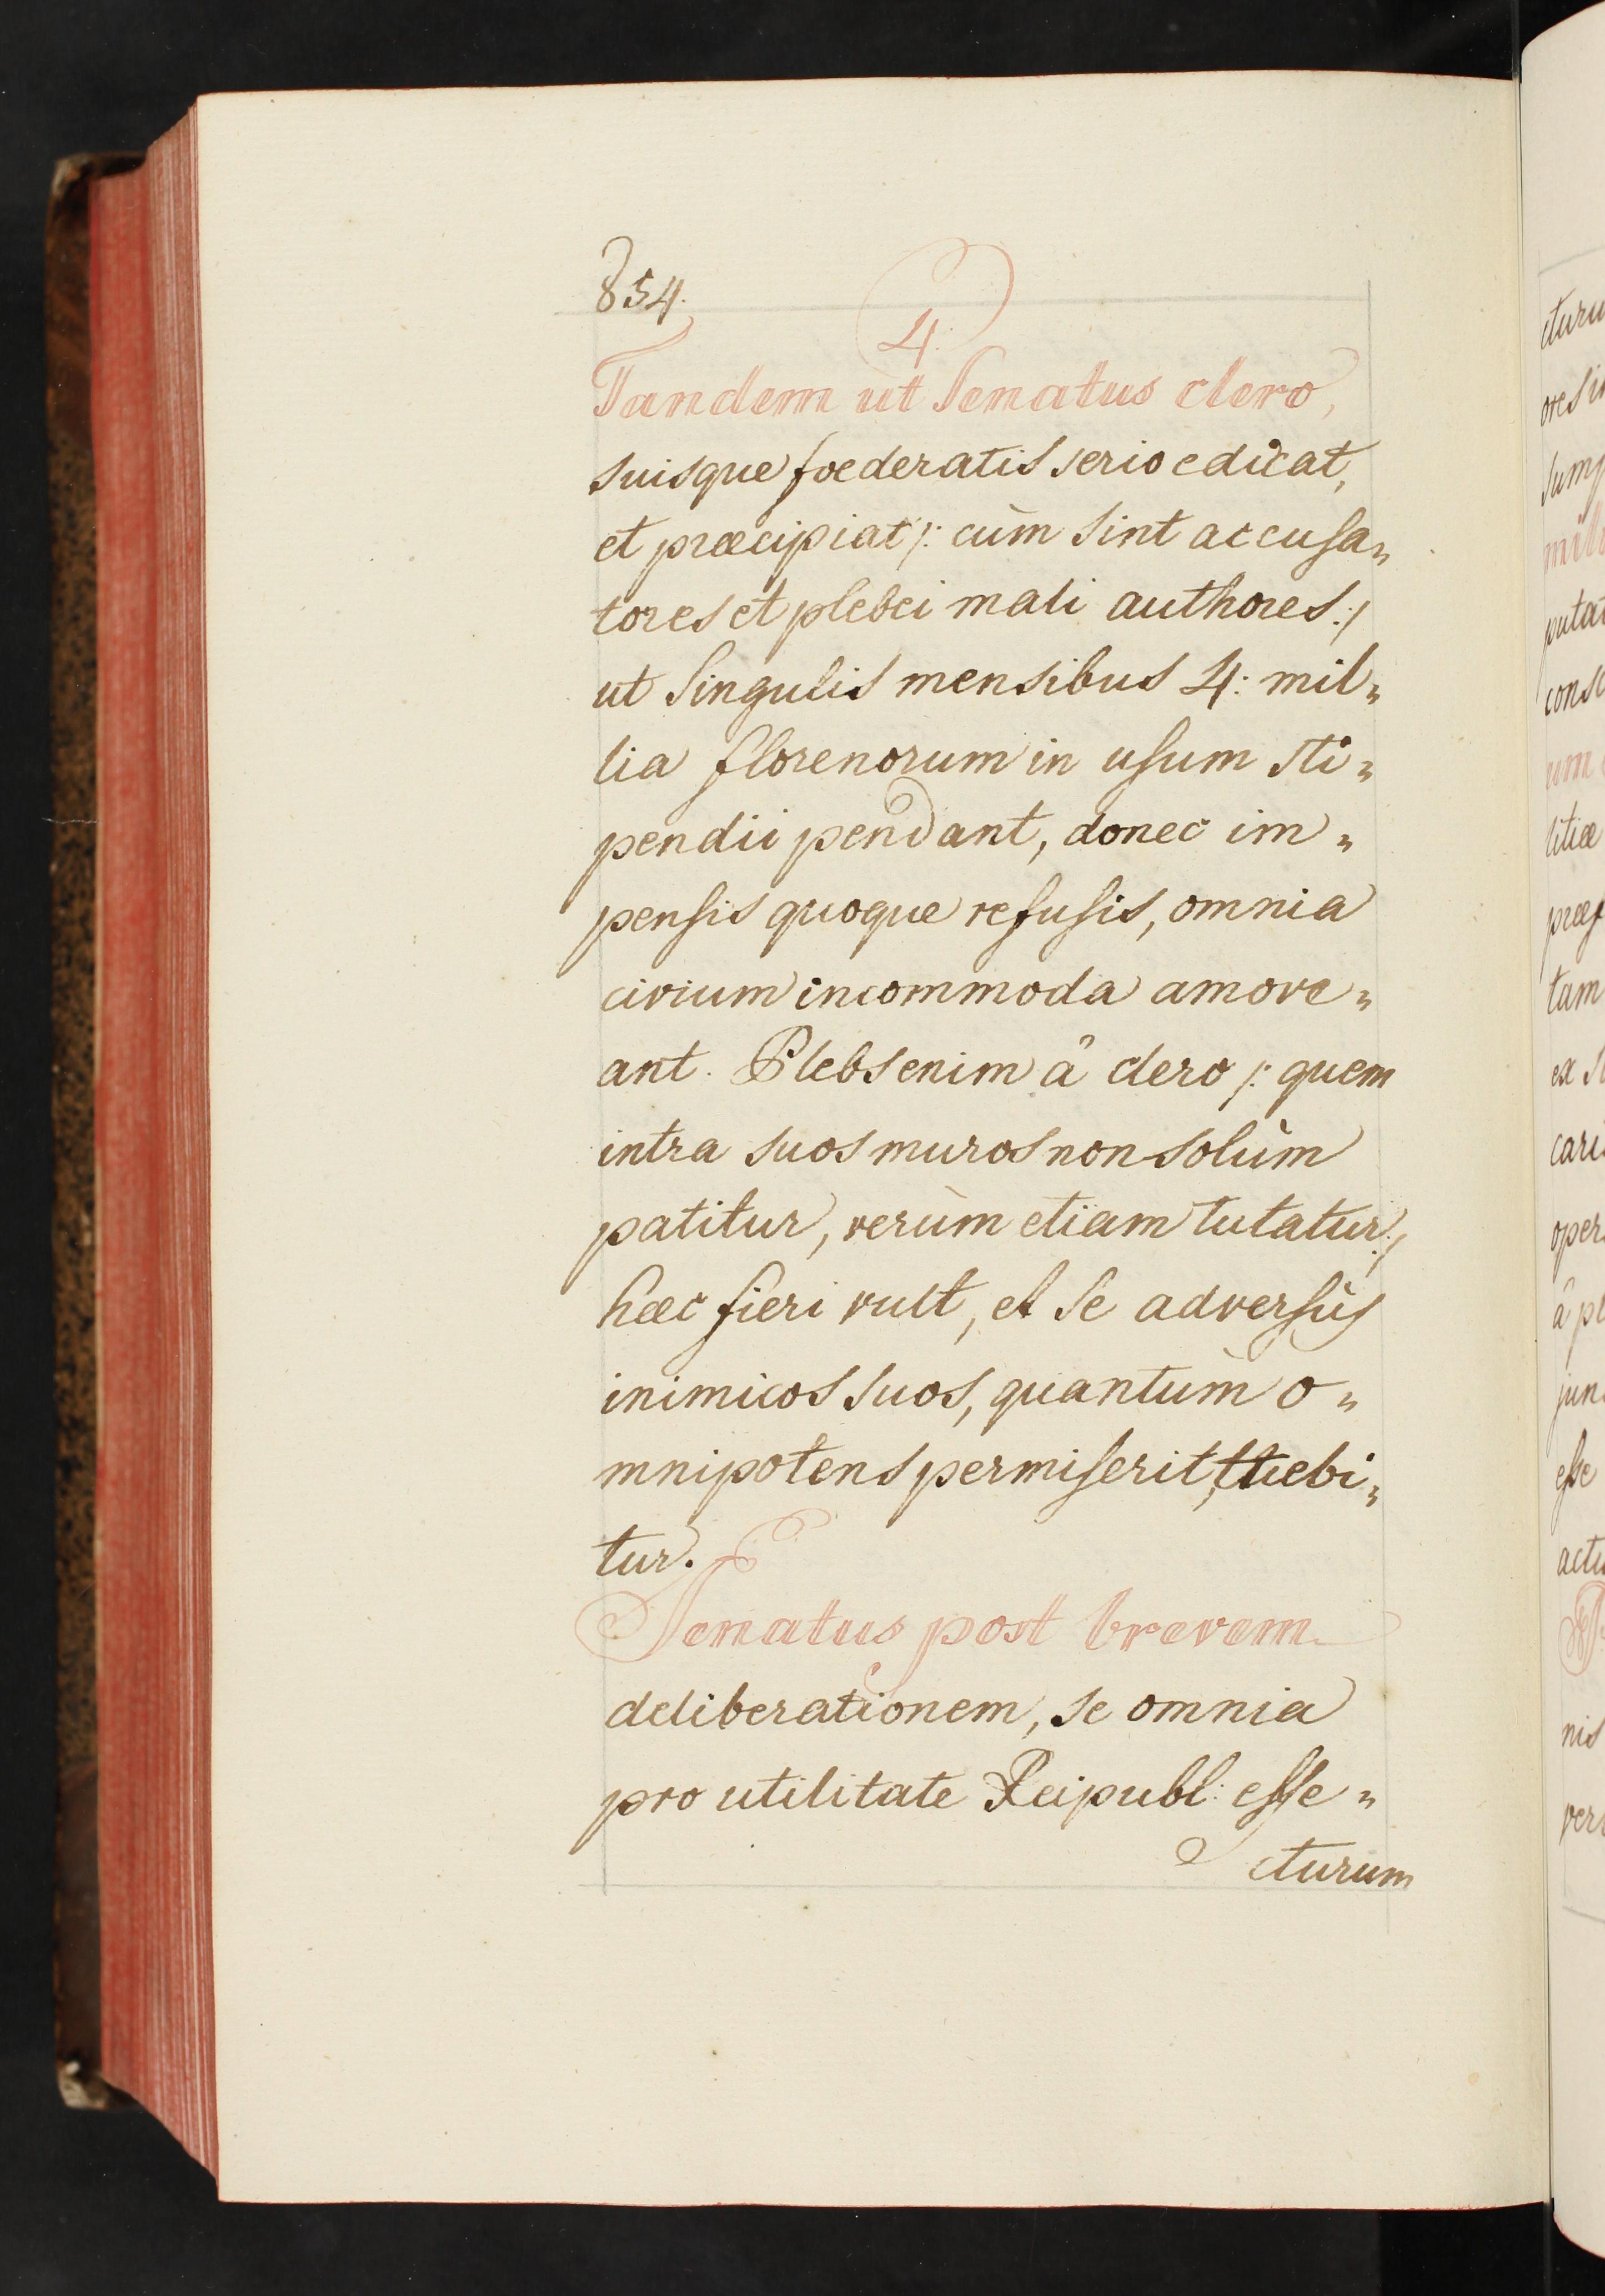 854.
4.
Tandem ut Senatus clero,
suisque foederatis serio edicat,
et præcipiat /: cùm sint accusa„
tores et plebei mali authores :/
ut singulis mensibus 4: mil„
lia florenorum in usum sti„
pendii pendant, donec im„
pensis quoque refusis, omnia
civium incommoda amove„
ant. Plebs enim â clero /: quem
intra suos muros non solùm
patitur, verùm etiam tutatur :/
hæc fieri vult, et se adversùs
inimicos suos, quantùm o„
mnipotens permiserit, tuebi„
tur.
Senatus post brevem
deliberationem, se omnia
pro utilitate Reipubl: effe„
cturum